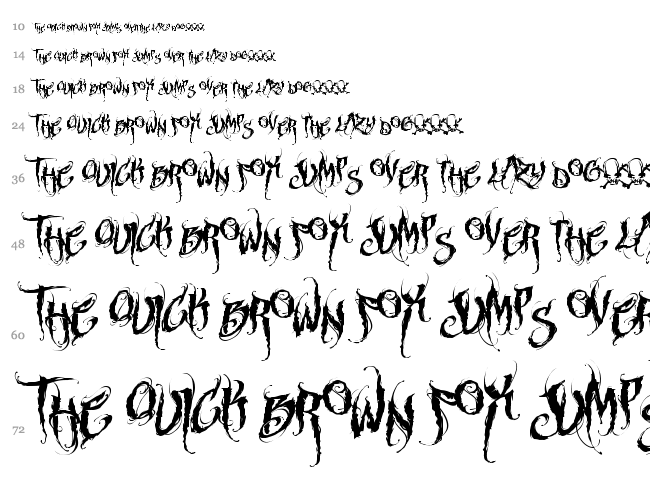 10 THE QUICK BROWN FOX JUMPS OVER THE LAZY DOG
14 THE QUICK BROWN FOX JUMPS OVER THE LAZY DOG
18 THE QUICK BROWN FOX JUMPS OVER THE LAZY DOG
24 THE QUICK BROWN FOX JUMPS OVER THE LAZY DOG
36 THE QUICK BROWN FOX JUMPS OVER THE LAZY DOG
48 THE QUICK BROWN FOX JUMPS OVER THE LA
60 THE QUICK BROWN FOX JUMPS OVER
72 THE QUICK BROWN FOX JUMPS